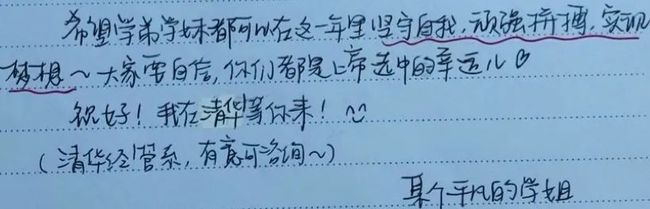 希望学弟学妹都可以在这一年里坚守自我,顽强拼搏,实现
梦想~大家要自信,你们都是上帝选中的幸运儿♡
祝好!我在清华等你来!
(清华经管系,有意可咨询~)
某个平凡的学姐